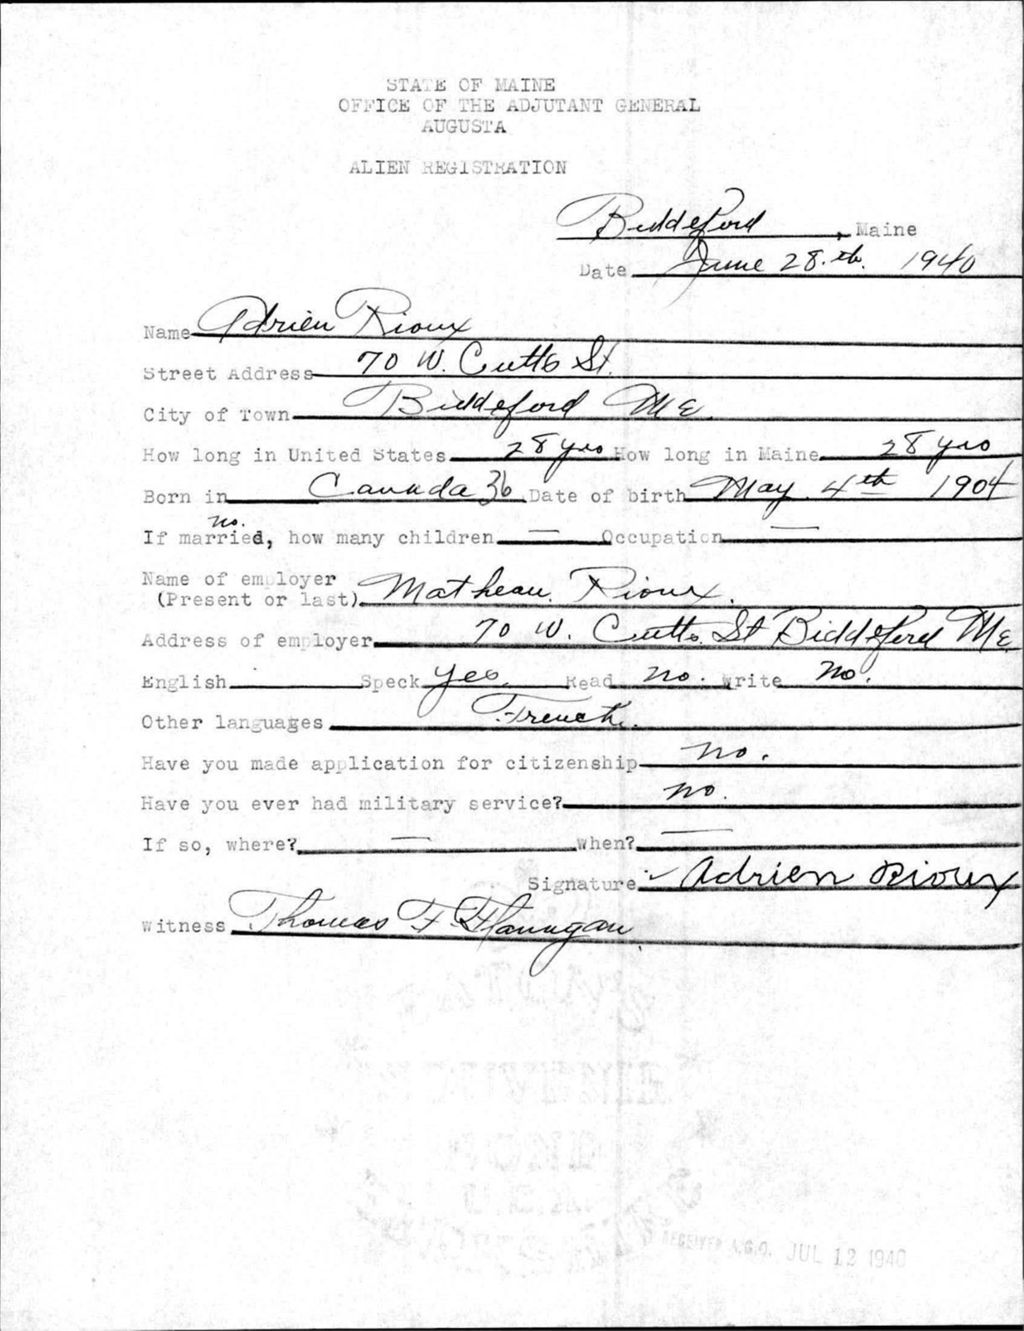 STATE OF MAINE
OFFICE OF THE ADJUTANT GENERAL
AUGUSTA
ALIEN REGISTRATION
Biddeford, Maine
Date June 28.th. 1940
Name Adrien Rioux
Street Address 70 W. Cutts St.
City of Town Biddeford Me.
How long in United States 28 yrs How long in Maine 28 yrs
Born in Canada 36 Date of birth May. 4th 1904
no.
If married, how many children — Occupation —
Name of employer
(Present or last) Matheau. Rioux.
Address of employer 70 W. Cutts. St Biddeford Me.
English Speck yes. Read no. Write No.
Other languages French.
Have you made application for citizenship no.
Have you ever had military service? no.
If so, where? — When? —
Signature Adrien Rioux
Witness Thomas F. Flanagan
RECEIVED A.G.O. JUL 12 1940